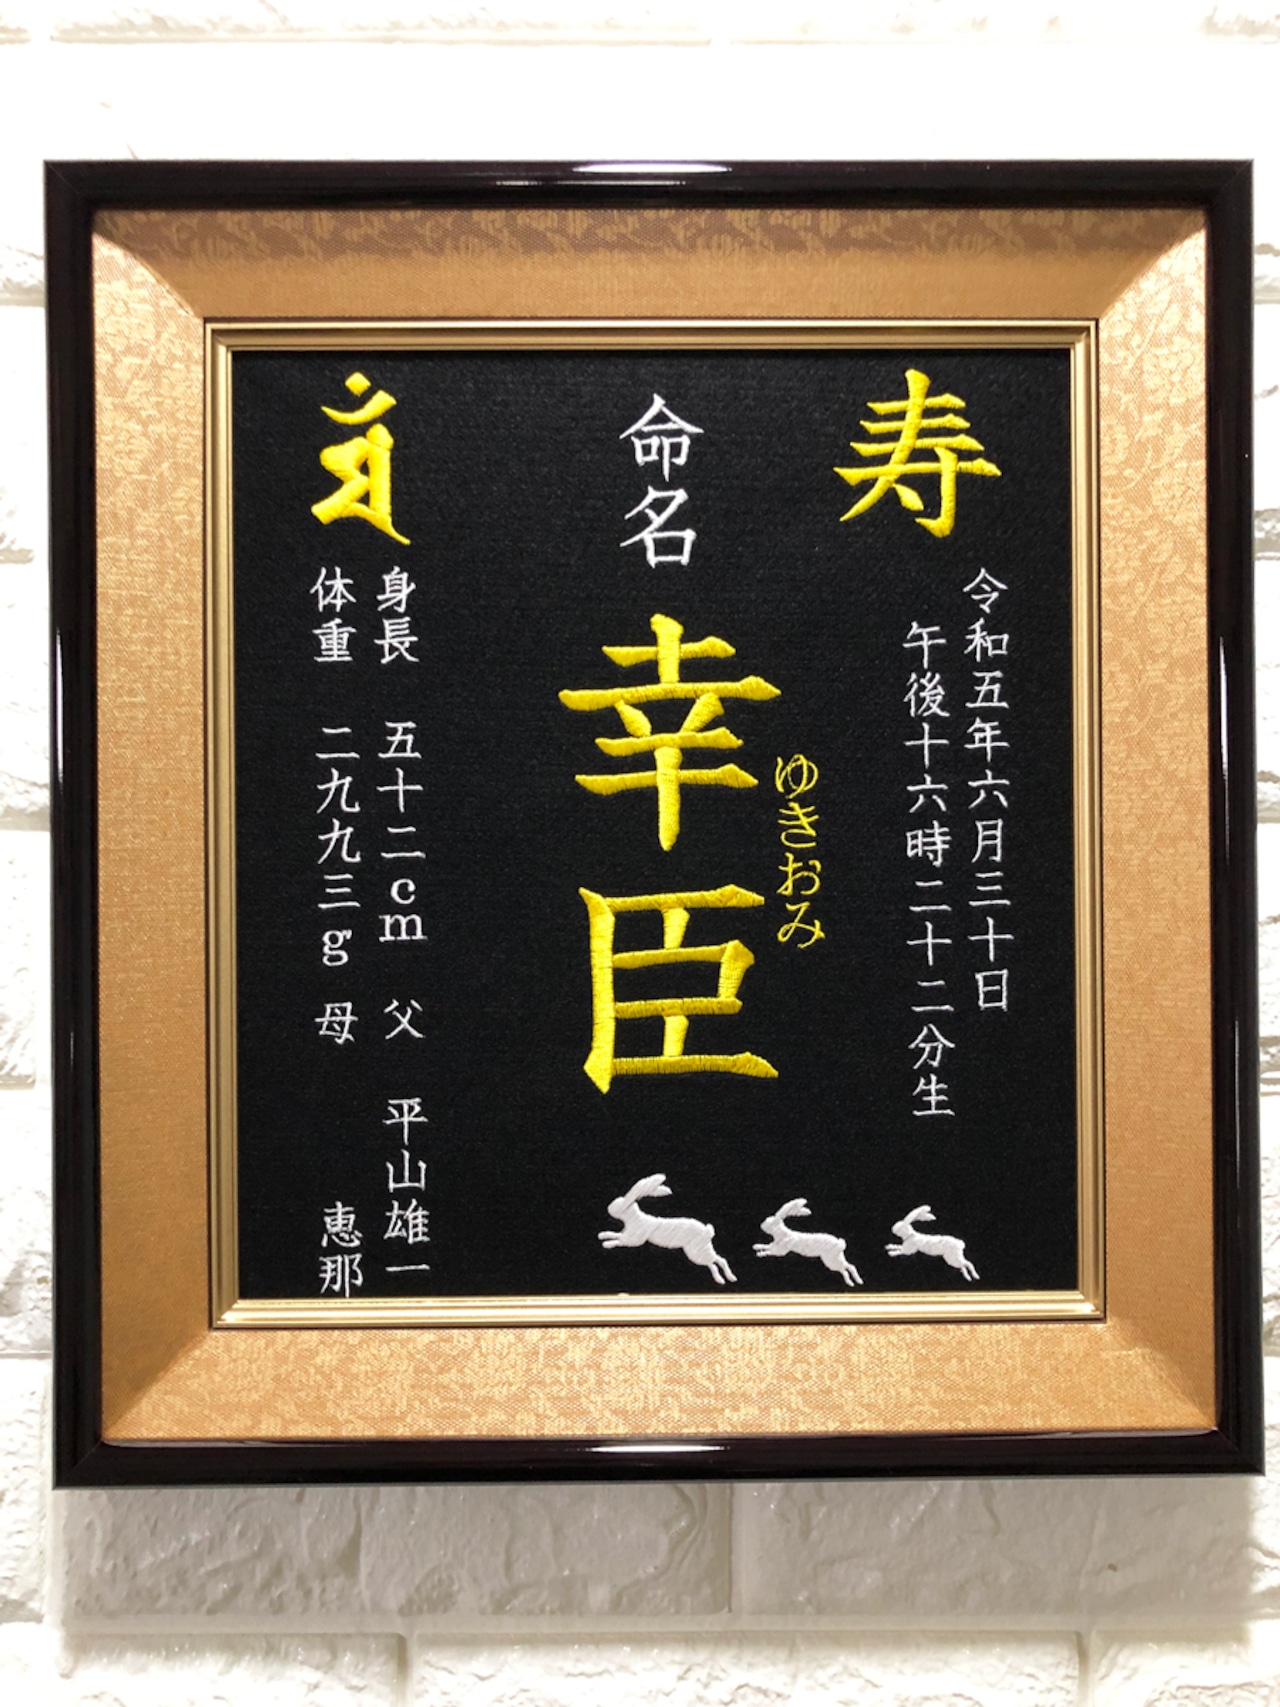 寿
令和五年六月三十日
午後十六時二十二分生
命名
幸臣
ゆきおみ
身長 五十二cm 父 平山雄一
体重 二九九三g 母 恵那